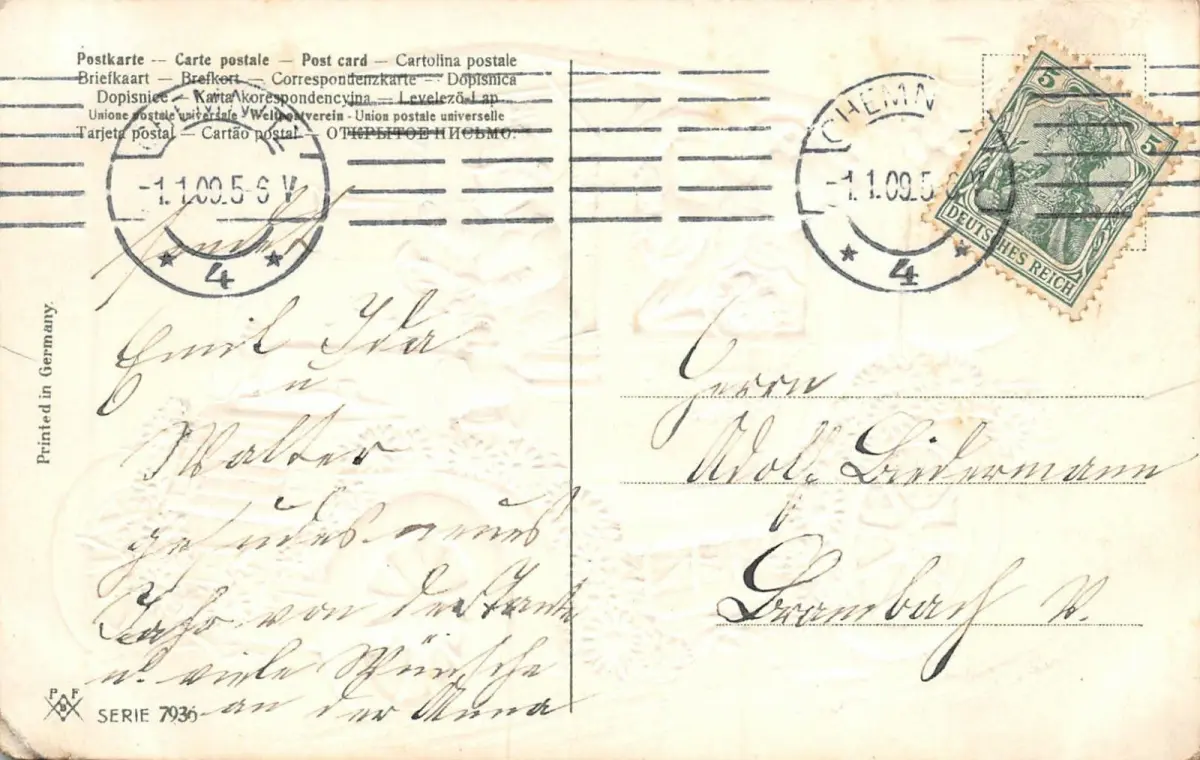 Postkarte — Carte postale — Post card — Cartolina postale
Briefkaart — Brefkort — Correspondenzkarte — Dopisnica
Dopisnice — Karta korespondencyjna — Levelező-Lap
Unione postale universale - Weltpostverein - Union postale universelle
Tarjeta postal — Cartão postal — ОТКРЫТОЕ ПИСЬМО.
-1.1.09.5-6 V
★ 4 ★
CHEMN
-1.1.09.5
★ 4 ★
5
5
DEUTSCHES REICH
Printed in Germany.
Emil Ida
u
Walter
neues
Jahr von der Tante
u. viele Wünsche
an der Anna
Herrn
Adolf Biedermann
Brambach V.
P F
B
SERIE 7936